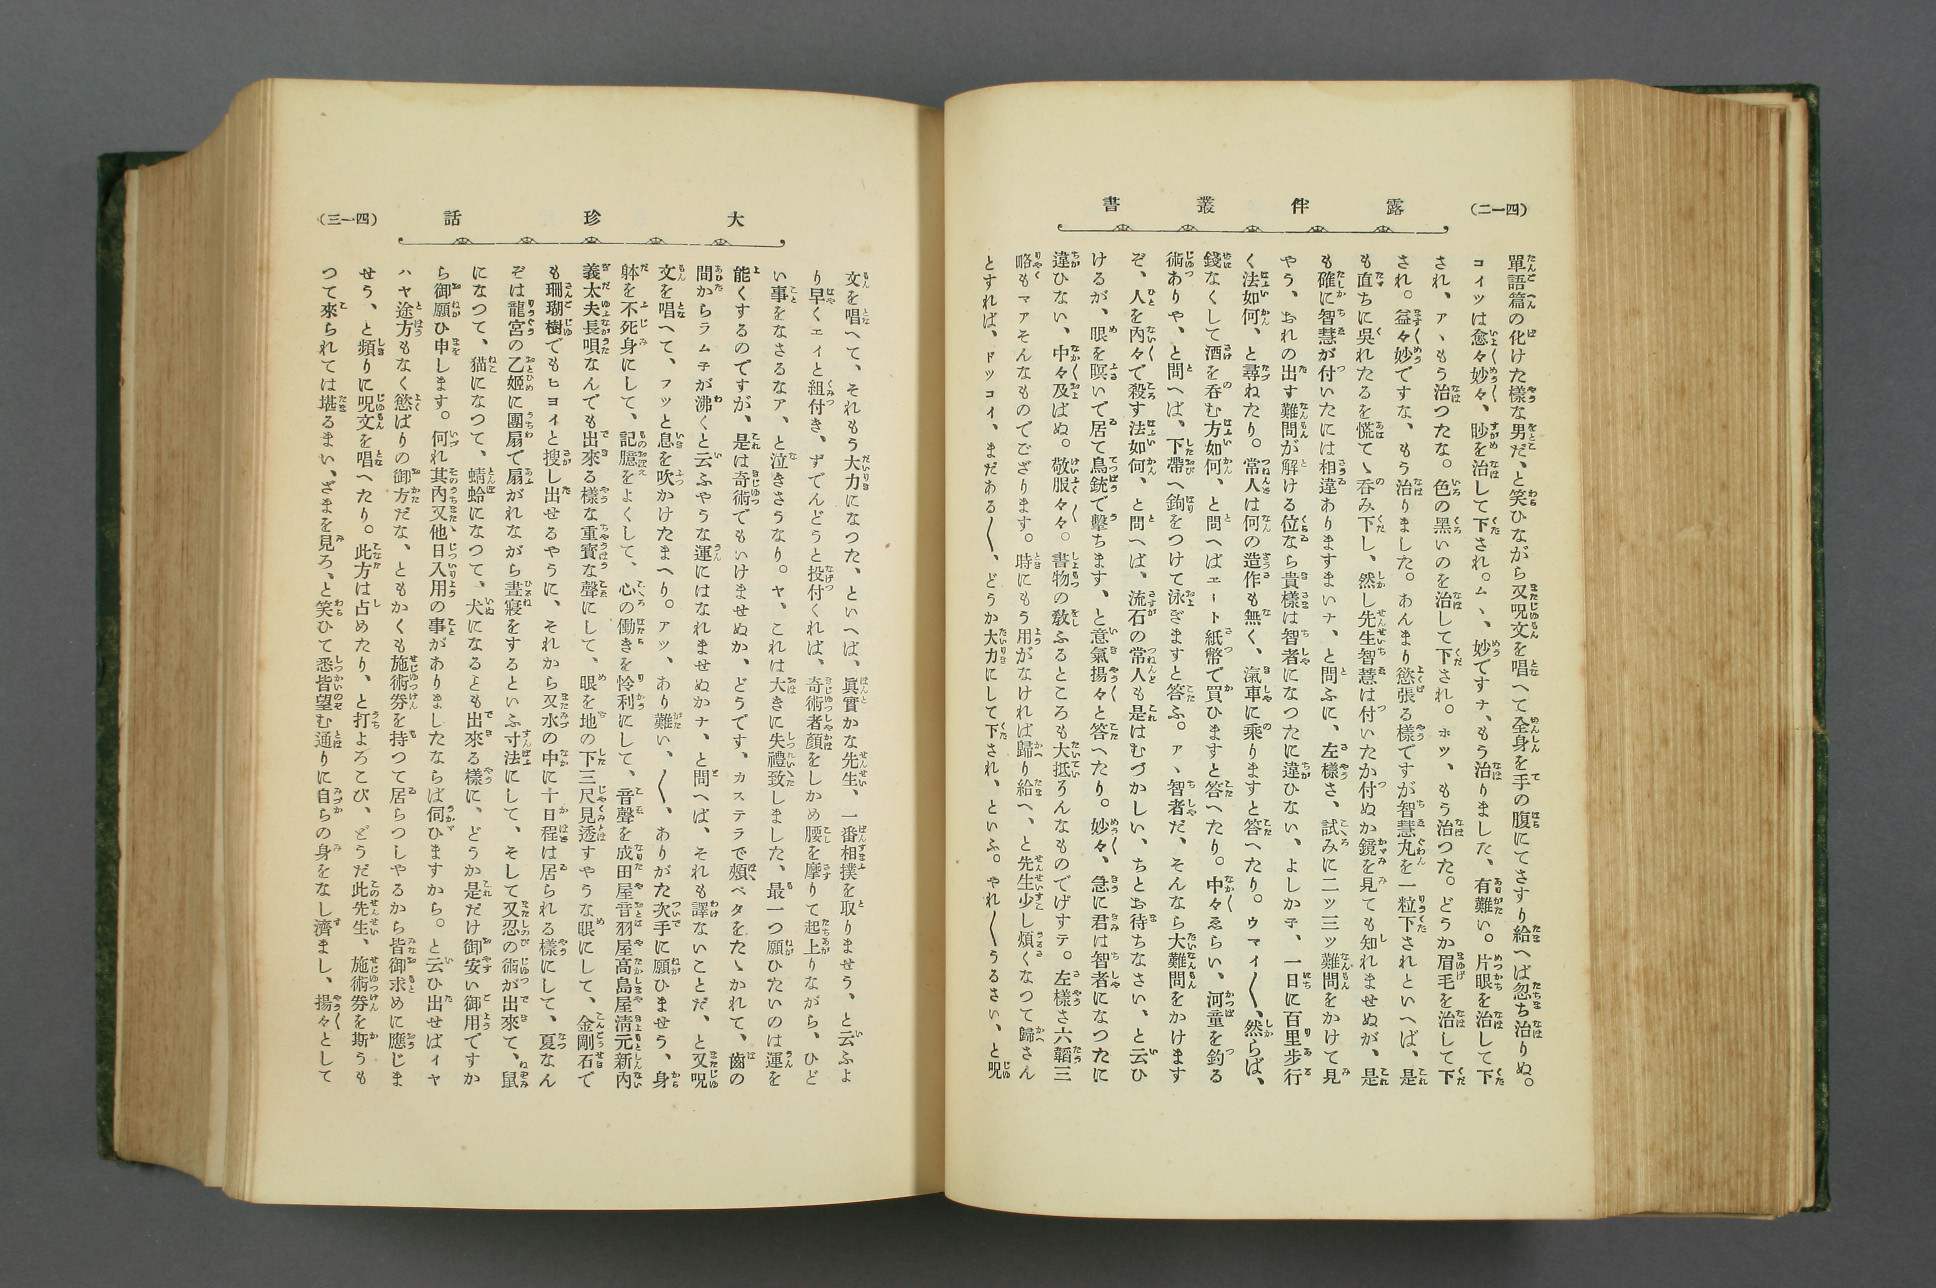 （四一二）
露伴叢書
單語篇の化けた樣な男だ、と笑ひながら又呪文を唱へて全身を手の腹にてさすり給へば忽ち治りぬ。
コイツは愈々妙々、眇を治して下され。ム、、妙ですナ、もう治りました、有難い。片眼を治して下
され、ア、もう治つたな。色の黑いのを治して下され。ホツ、もう治つた。どうか眉毛を治して下
され。益々妙ですな、もう治りました。あんまり慾張る樣ですが智慧丸を一粒下されといへば、是
も直ちに吳れたるを慌てゝ呑み下し、然し先生智慧は付いたか付ぬか鏡を見ても知れませぬが、是
も確に智慧が付いたには相違ありますまいナ、と問ふに、左樣さ、試みに二ツ三ツ難問をかけて見
やう、おれの出す難問が解ける位なら貴樣は智者になつたに違ひない、よしか子、一日に百里步行
く法如何、と尋ねたり。常人は何の造作も無く、滊車に乘りますと答へたり。ウマイ〱、然らば、
錢なくして酒を呑む方如何、と問へばエート紙幣で買ひますと答へたり。中々ゑらい、河童を釣る
術ありや、と問へば、下帶へ鉤をつけて泳ぎますと答ふ。ア、智者だ、そんなら大難問をかけます
ぞ、人を內々で殺す法如何、と問へば、流石の常人も是はむづかしい、ちとお待ちなさい、と云ひ
けるが、眼を瞑いで居て鳥銃で擊ちます、と意氣揚々と答へたり。妙々、急に君は智者になつたに
違ひない、中々及ばぬ。敬服々々。書物の敎ふるところも大抵ろんなものでげすテ。左樣さ六韜三
略もマアそんなものでござります。時にもう用がなければ歸り給へ、と先生少し煩くなつて歸さん
とすれば、ドツコイ、まだある〱、どうか大力にして下され、といふ。やれ〱うるさい、と呪
大珍話
（四一三）
文を唱へて、それもう大力になつた、といへば、眞實かな先生、一番相撲を取りませう、と云ふよ
り早くエイと組付き、ずでんどうと投付くれば、奇術者顏をしかめ腰を摩りて起上りながら、ひど
い事をなさるなア、と泣きさうなり。ヤ、これは大きに失禮致しました、最一つ願ひたいのは運を
能くするのですが、是は奇術でもいけませぬか、どうです、カステラで頰ペタをたゝかれて、齒の
間からラム子が沸くと云ふやうな運にはなれませぬかナ、と問へば、それも譯ないことだ、と又呪
文を唱へて、フツと息を吹かけたまへり。アツ、あり難い、〱、ありがた次手に願ひませう、身
躰を不死身にして、記臆をよくして、心の働きを怜利にして、音聲を成田屋音羽屋高島屋淸元新內
義太夫長唄なんでも出來る樣な重寶な聲にして、眼を地の下三尺見透すやうな眼にして、金剛石で
も珊瑚樹でもヒヨイと搜し出せるやうに、それから又水の中に十日程は居られる樣にして、夏なん
ぞは龍宮の乙姬に團扇で扇がれながら晝寢をするといふ寸法にして、そして又忍の術が出來て、鼠
になつて、猫になつて、蜻蛉になつて、犬になるとも出來る樣に、どうか是だけ御安い御用ですか
ら御願ひ申します。何れ其內又他日入用の事がありましたならば伺ひますから。と云ひ出せばイヤ
ハヤ途方もなく慾ばりの御方だな、ともかくも施術劵を持つて居らつしやるから皆御求めに應じま
せう、と頻りに呪文を唱へたり。此方は占めたり、と打よろこび、どうだ此先生、施術劵を斯うも
つて來られては堪るまい、ざまを見ろ、と笑ひて悉皆望む通りに自らの身をなし濟まし、揚々として